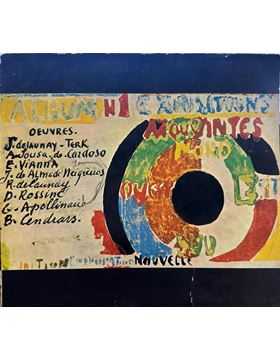 ALBUM N1
MOUVANTES
NORD
OEUVRES.
S. deLaunay-Terk
A. Sousa. do Cardoso
E. Vianna
J. de Almada Negreiros
R. delaunay
D. Rossine
G. Apollinaire
B. Cendrars.
OUEST EST
SUD
NOUVELLE